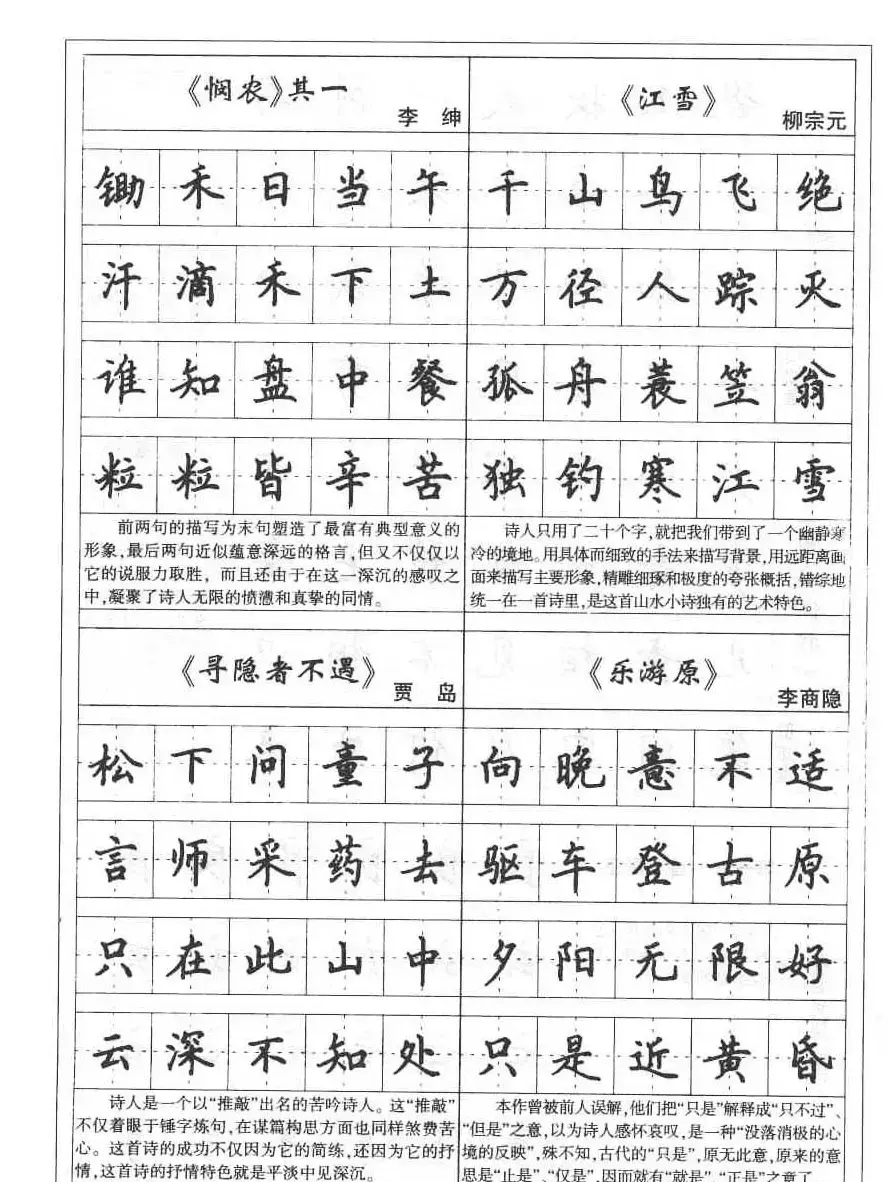 《悯农》其一
李 绅
锄禾日当午
汗滴禾下土
谁知盘中餐
粒粒皆辛苦
前两句的描写为末句塑造了最富有典型意义的
形象,最后两句近似蕴意深远的格言,但又不仅仅以
它的说服力取胜，而且还由于在这一深沉的感叹之
中,凝聚了诗人无限的愤懑和真挚的同情。
《江雪》
柳宗元
千山鸟飞绝
万径人踪灭
孤舟蓑笠翁
独钓寒江雪
诗人只用了二十个字,就把我们带到了一个幽静寒
冷的境地。用具体而细致的手法来描写背景,用远距离画
面来描写主要形象,精雕细琢和极度的夸张概括,错综地
统一在一首诗里,是这首山水小诗独有的艺术特色。
《寻隐者不遇》
贾 岛
松下问童子
言师采药去
只在此山中
云深不知处
诗人是一个以“推敲”出名的苦吟诗人。这“推敲”
不仅着眼于锤字炼句,在谋篇构思方面也同样煞费苦
心。这首诗的成功不仅因为它的简练,还因为它的抒
情,这首诗的抒情特色就是平淡中见深沉。
《乐游原》
李商隐
向晚意不适
驱车登古原
夕阳无限好
只是近黄昏
本作曾被前人误解,他们把“只是”解释成“只不过”、
“但是”之意,以为诗人感怀哀叹,是一种“没落消极的心
境的反映”,殊不知,古代的“只是”,原无此意,原来的意
思是“止是”、“仅是”,因而就有“就是”、“正是”之意了。